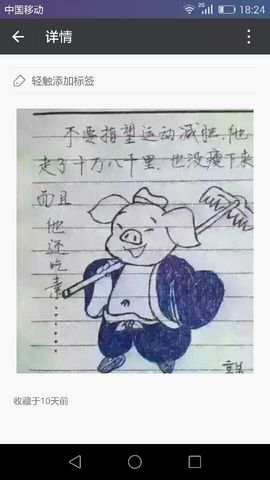 中国移动
2G
18:24
详情
轻触添加标签
不要指望运动减肥,他
走了十万八千里.也没瘦下来
而且
他还吃素……
收藏于10天前